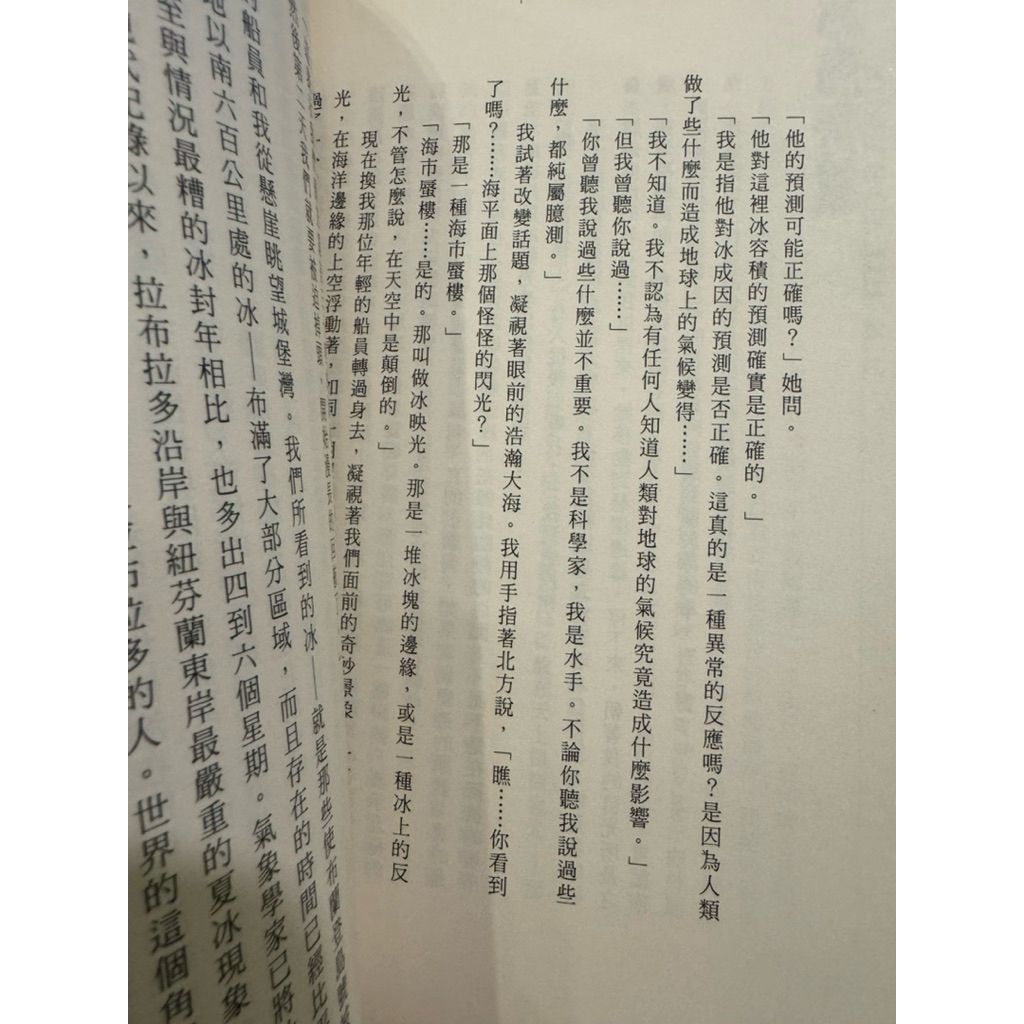 「他的預測可能正確嗎？」她問。
「他對這裡冰容積的預測確實是正確的。」
「我是指他對冰成因的預測是否正確。這真的是一種異常的反應嗎？是因為人類
做了些什麼而造成地球上的氣候變得……」
「我不知道。我不認為有任何人知道人類對地球的氣候究竟造成什麼影響。」
「但我曾聽你說過……」
「你曾聽我說過些什麼並不重要。我不是科學家，我是水手。不論你聽我說過些
什麼，都純屬臆測。」
我試著改變話題，凝視著眼前的浩瀚大海。我用手指著北方說，「瞧……你看到
了嗎？……海平面上那個怪怪的閃光？」
「那是一種海市蜃樓。」
「海市蜃樓……是的。那叫做冰映光。那是一堆冰塊的邊緣，或是一種冰上的反
光，不管怎麼說，在天空中是顛倒的。」
現在換我那位年輕的船員轉過身去，凝視著我們面前的奇妙景象
光，在海洋邊緣的上空浮動著，如同一
船員和我從懸崖眺望城堡灣。我們所看到的冰——就是那些使布蘭登島號
地以南六百公里處的冰——布滿了大部分區域，而且存在的時間已經比
至與情況最糟的冰封年相比，也多出四到六個星期。氣象學家已將
記錄以來，拉布拉多沿岸與紐芬蘭東岸最嚴重的夏冰現象
拉多的人。世界的這個角